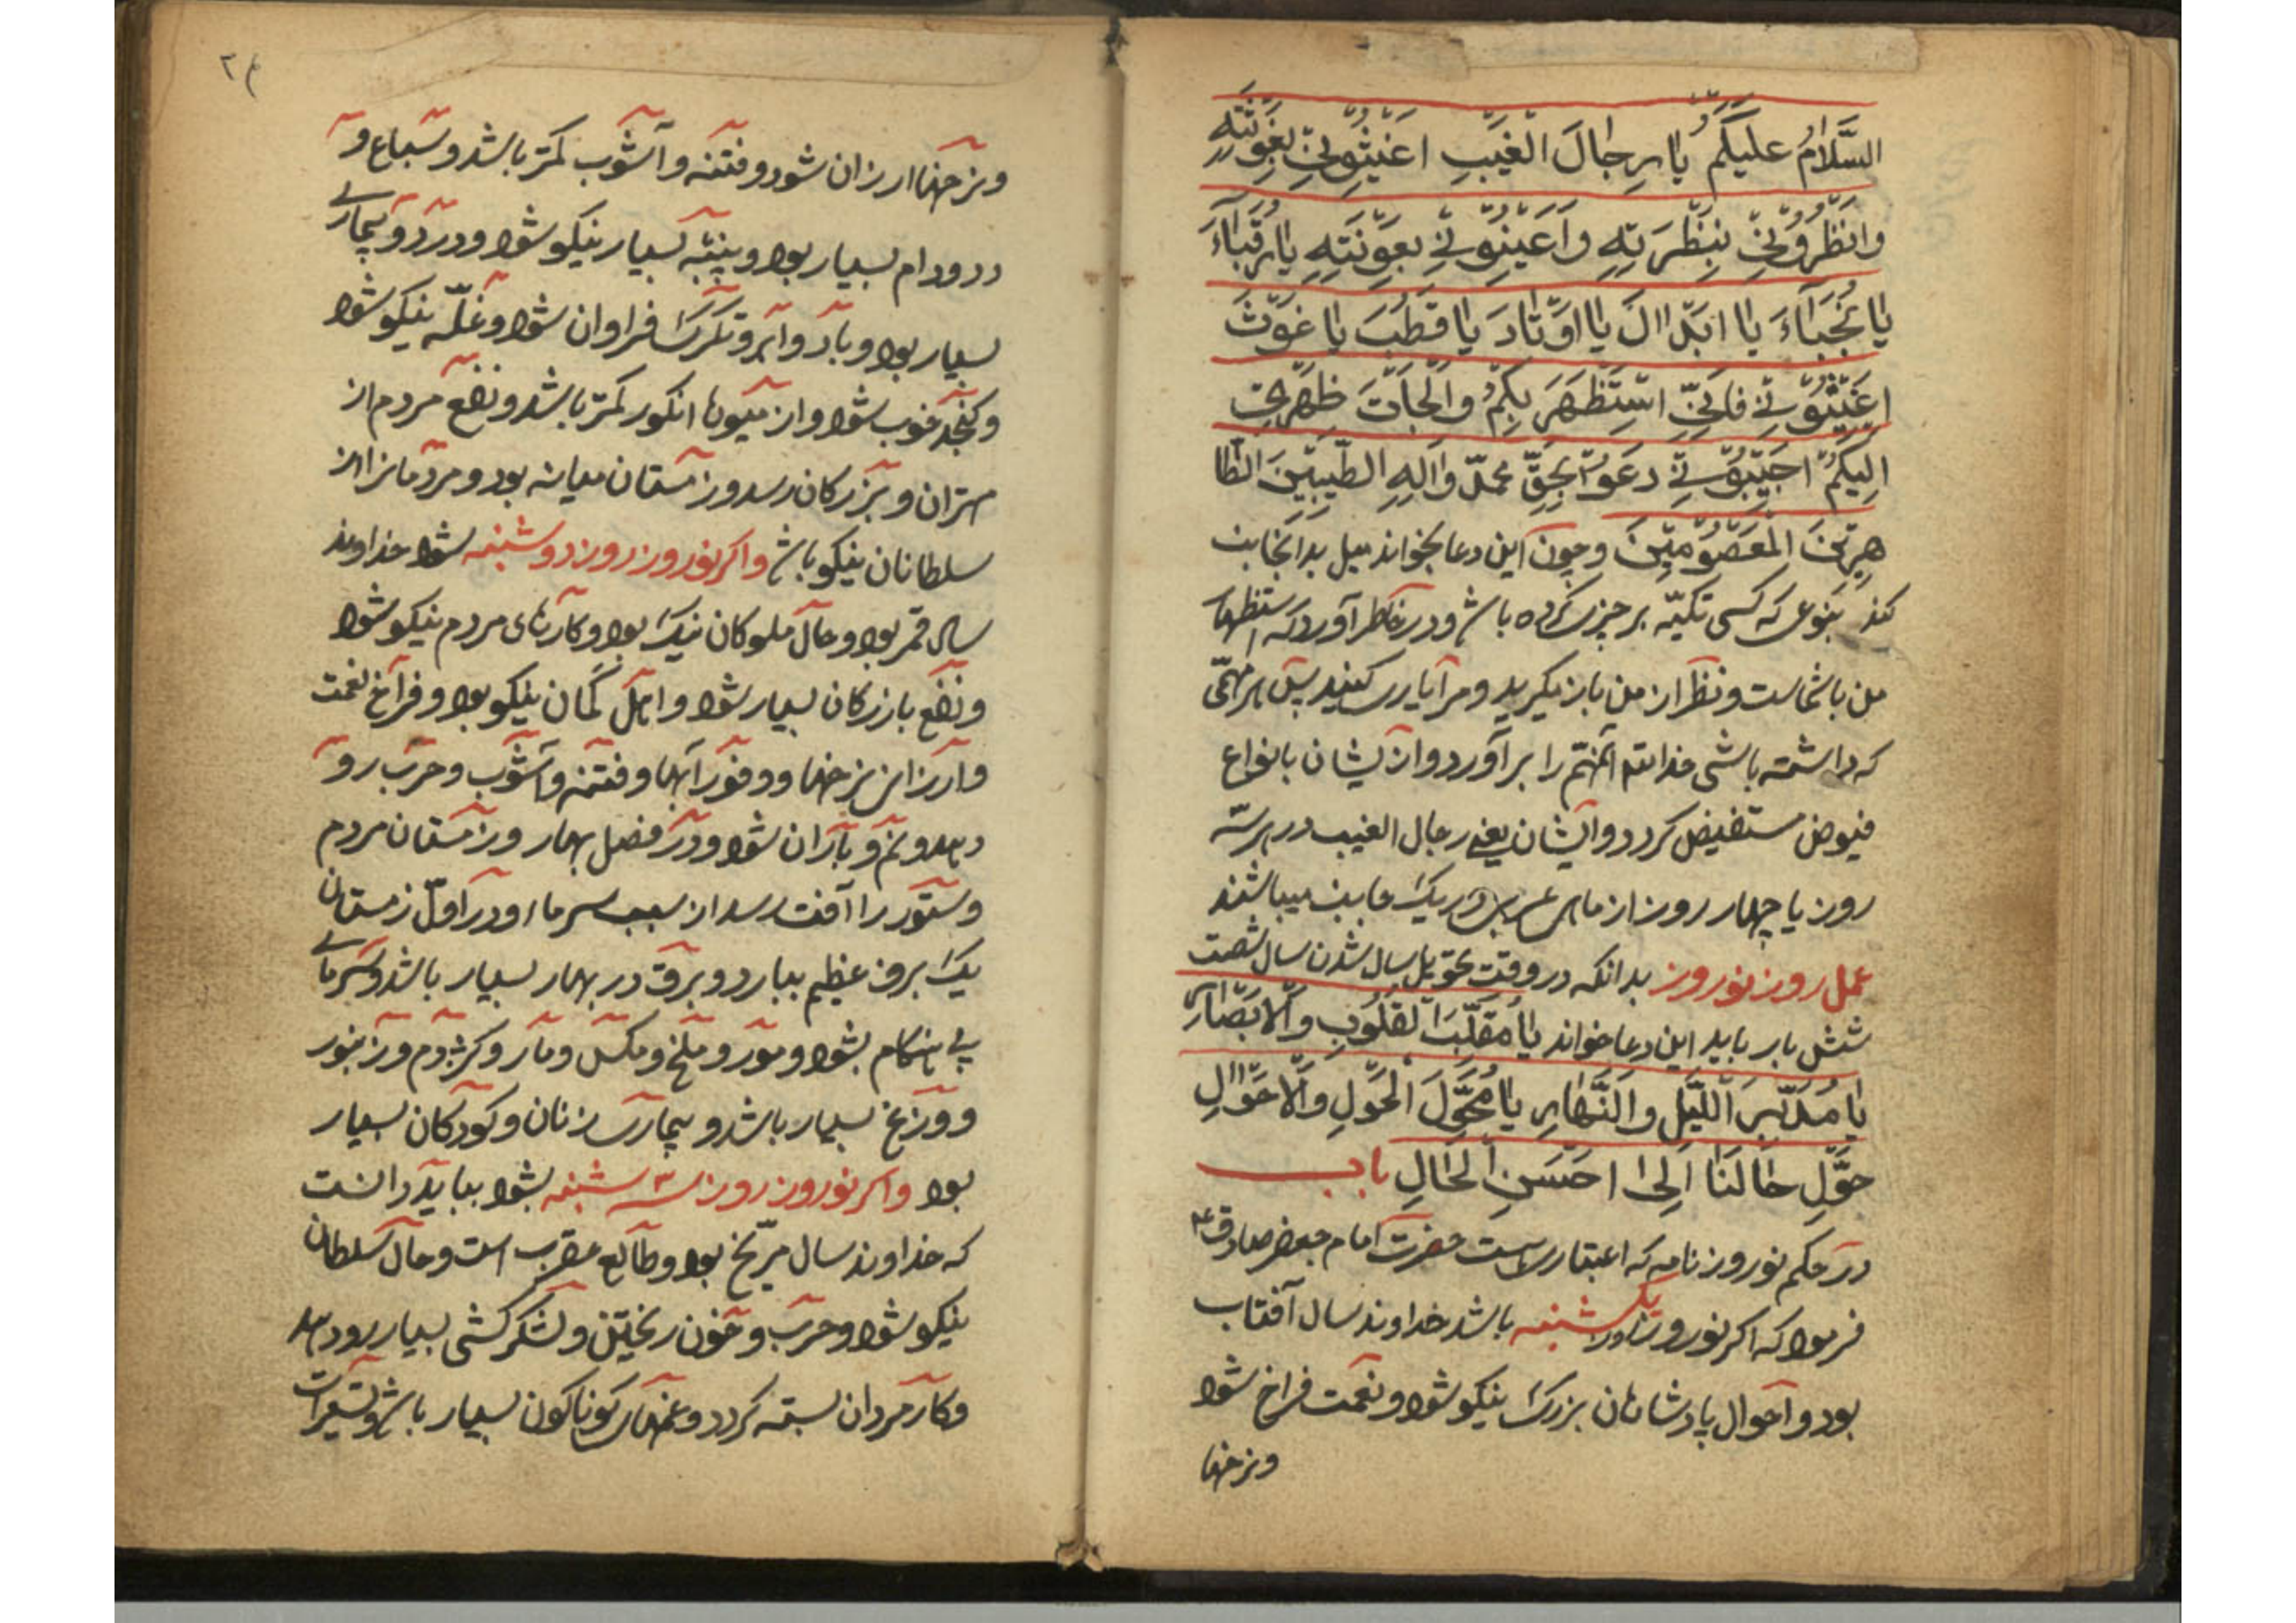 السَّلَامُ عَلَيْكُمْ يَا رِجَالَ الْغَيْبِ اَغِيثُونِي بِغَوْثَةٍ
وَانْظُرُونِي بِنَظْرَةٍ وَاَعِينُونِي بِعَوْنَةٍ يَا رُقَبَاءَ
يَا نُجَبَاءَ يَا اَبْدَالَ يَا اَوْتَادَ يَا قُطْبَ يَا غَوْثَ
اَغِيثُونِي فَاِنِّي اسْتَظْهَرَ بِكُمْ وَالْجَأتَ ظَهْرِي
اِلَيْكُمْ اَجِيبُونِي دعوة بِحَقِّ مُحَمَّدٍ وَآلِهِ الطَّيِّبِينَ الطَّا
هِرِينَ الْمَعْصُومِينَ وچون این دعا بخواند میل بدانجانب
کند بنوعی که کسی تکیه بر چیزی کرده باشد ودر خاطر آورد که استظهار
من باشماست ونظر از من باز نگیرید ومرا یاری کنید پس هر مهمّی
که داشته باشی خدایتعالی آنمهمّ را برآورد واز ایشان بانواع
فیوض مستفیض کردد وایشان یعنی رجال الغیب در هر سه
روز یا چهار روز از ماه عربی در یک جانب میباشند
عمل روز نوروز بدانکه در وقت تحویل سال شدن سال شصت
شش بار باید این دعا خواند یَا مُقَلِّبَ الْقُلُوبِ وَالْاَبْصَارِ
یَا مُدَبِّرَ اللَّیْلِ وَالنَّهَارِ یَا مُحَوِّلَ الْحَوْلِ وَالْاَحْوَالِ
حَوِّلْ حَالَنَا اِلَی اَحْسَنِ الْحَالِ باب
در حکم نوروز نامه که اعتباریست حضرت امام جعفر صادق ع
فرمود که اکر نوروز یکشنبه باشد خداوند سال آفتاب
بود واحوال پادشاهان بزرک نیکو شود ونعمت فراخ شود
ونرخها
ونرخها ارزان شود وفتنه وآشوب کمتر باشد وسباع و
دد ودام بسیار بود وپنبه بسیار نیکو شود ودرد وبیماری
بسیار بود وباد وابر وتکرک فراوان شود وغلّه نیکو شود
وکنجد خوب شود واز میوها انکور کمتر باشد ونفع مردم از
مهتران وبزرکان رسد وزمستان میانه بود ومردمانرا از
سلطانان نیکو باشد واکر نوروز روز دوشنبه شود خداوند
سال قمر بود وحال ملوکان نیک بود وکارهای مردم نیکو شود
ونفع بازرکان بسیار شود واهل کمان نیکو بود وفراخ نعمت
وارزانی نرخها ووفور آبها وفتنه وآشوب وحرب رو
دهد ونم وباران شود ودر فصل بهار وزمستان مردم
وستور را آفت رسد از سبب سرما ودر اوّل زمستان
یک برف عظیم ببارد وبرق در بهار بسیار باشد وسرمای
بی هنکام بشود ومور وملخ ومکس ومار وکژدم وزنبور
ووزغ بسیار باشد وبیماری زنان وکودکان بسیار
بود واکر نوروز روز سه شنبه بشود بباید دانست
که خداوند سال مرّیخ بود وطالع عقرب است وحال سلطان
نیکو شود وحرب وخون ریختن ولشکر کشی بسیار رو دهد
وکار مردان بسته کردد وغمهای کوناکون بسیار باشد